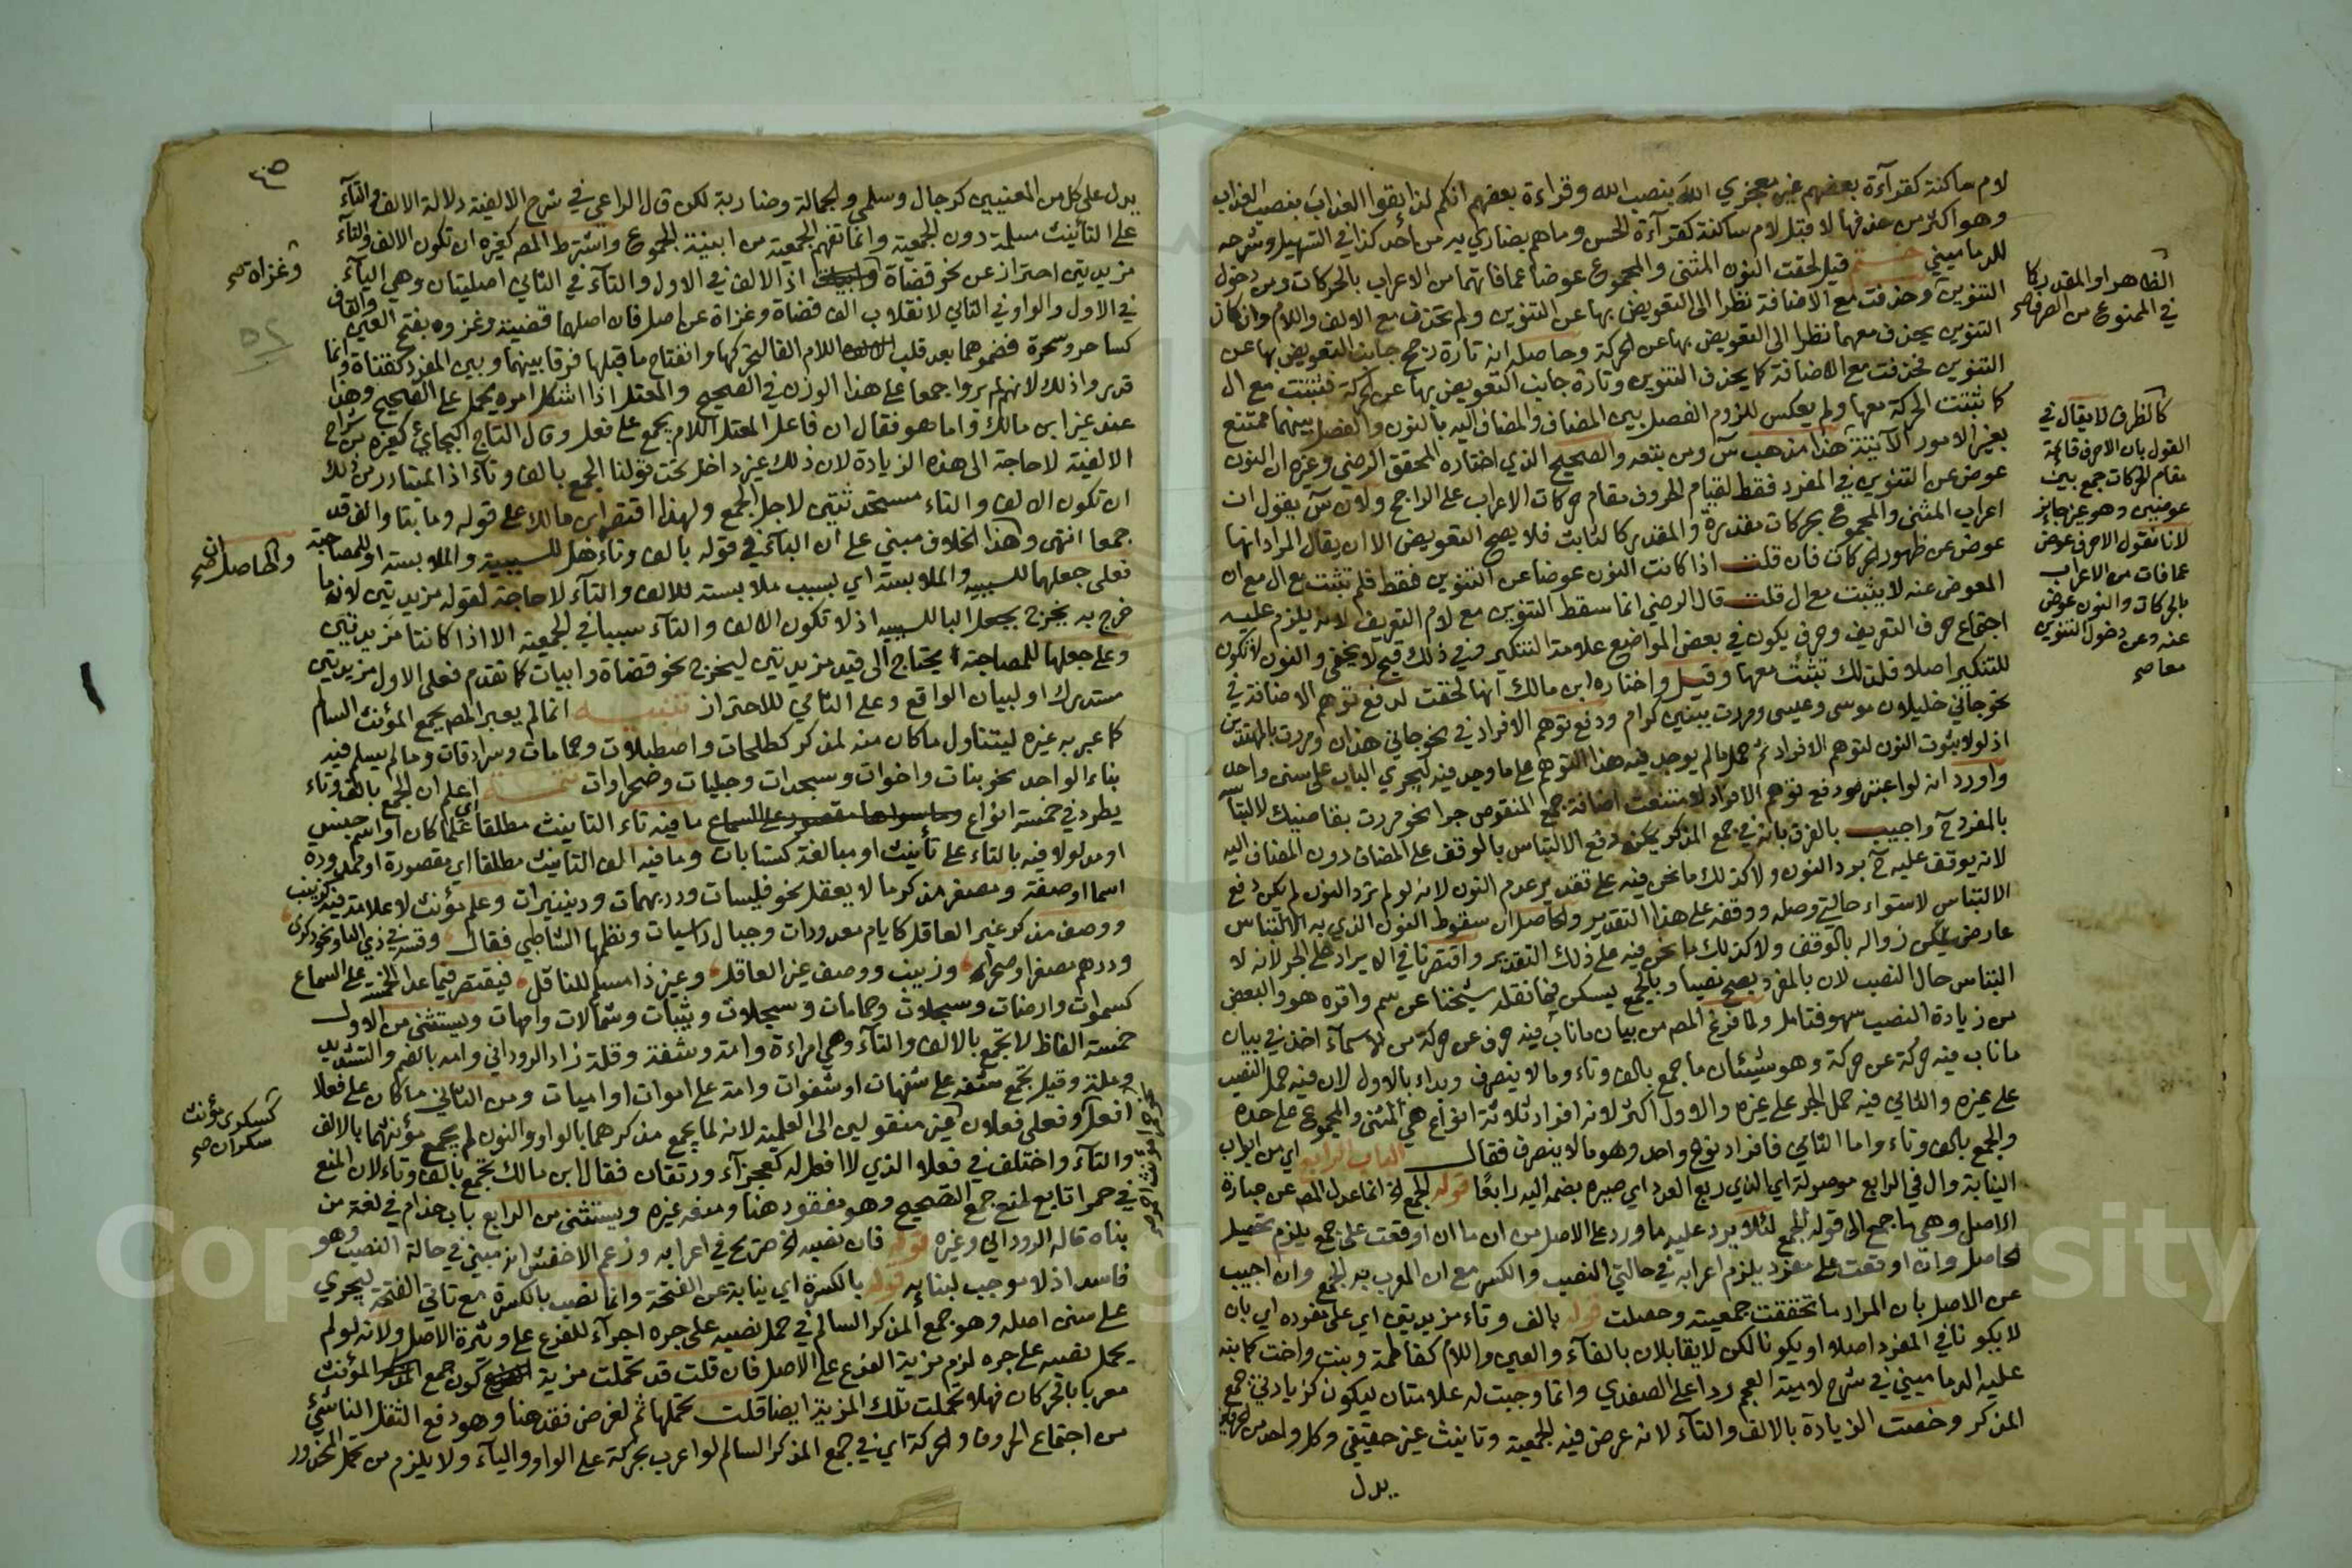 لام ساكنة كقرآءة بعضهم غير معجزي اللهَ بنصب الله وقراءة بعضهم انكم لذائقوا العذابَ بنصب العذاب
وهو اكثر من حذفها لا قبل لام ساكنة كقرآءة الحسن وما هم بضاري به من احد كذا في التسهيل وشرحه
للدماميني ختم قيل لحقت النون المثنى والمجموع عوضا عما فاتهما من الاعراب بالحركات ومن دخول
التنوين وحذفت مع الاضافة نظرا الى التعويض بها عن التنوين ولم تحذف مع الالف واللام وان كان
التنوين يحذف معهما نظرا الى التعويض بها عن الحركة وحاصله انه تارة رجح جانب التعويض بها عن
التنوين فحذفت مع الاضافة كما يحذف التنوين وتارة جانب التعويض بها عن الحركة فثبتت مع ال
كما ثبتت الحركة معها ولم يعكس للزوم الفصل بين المضاف والمضاف اليه بالنون والفصل بينهما ممتنع
بغير الامور الآتية هذا مذهب س ومن بتعه والصحيح الذي اختاره المحقق الرضي وغيره ان النون
عوض عن التنوين في المفرد فقط لقيام الحروف مقام حركات الاعراب على الراجح ولان س يقول ان
اعراب المثنى والمجموع بحركات مقدرة والمقدر كالثابت فلا يصح التعويض الا ان يقال المراد انها
عوض عن ظهور الحركات فان قلت اذا كانت النون عوضا عن التنوين فقط فلم تثبت مع ال مع ان
المعوض عنه لا يثبت مع ال قلت قال الرضي انما سقط التنوين مع لام التعريف لانه يلزم عليه
اجتماع حرف التعريف وحرف يكون في بعض المواضع علامة التنكير وفي ذلك قبح لا يخفى والنون لا تكون
للتنكير اصلا فلذلك تثبت معها وقيل واختاره ابن مالك انها لحقت لدفع توهم الاضافة في
نحو جاءني خليلان موسى وعيسى ومررت ببنين كرام ودفع توهم الافراد في نحو جاءني هذان ومررت بالمهتدين
اذ لولا ثبوت النون لتوهم الافراد ثم حمل ما لم يوجد فيه هذا التوهم على ما وجد فيه ليجري الباب على سنن واحد
واورد انه لو اعتبر دفع توهم الافراد لامتنعت اضافة جمع المنقوص جرا نحو مررت بقاضيك لالتباسه
بالمفرد ح واجيب بالفرق بانه في جمع المذكر يمكن دفع الالتباس بالوقف على المضاف دون المضاف اليه
لانه يوقف عليه ح برد النون ولا كذلك ما نحن فيه على تقدير عدم النون لانه لو لم ترد النون لم يكن دفع
الالتباس لاستواء حالتي وصله ووقفه على هذا التقدير والحاصل ان سقوط النون الذي به الالتباس
عارض يمكن زواله بالوقف ولا كذلك ما نحن فيه على ذلك التقدير واقتصرنا في الايراد على الجر لانه لا
التباس حال النصب لان بالمفرد يصح نصبا وبالجمع يسكن فما نقله شيخنا عن سم واقره هو والبعض
من زيادة النصب سهو فتامل ولما فرغ المص من بيان ما ناب فيه حرف عن حركة من الاسمآء اخذ في بيان
ما ناب فيه حركة عن حركة وهو شيئان ما جمع بالف وتاء وما لا ينصرف وبداء بالاول لان فيه حمل النصب
على غيره والثاني فيه حمل الجر على غيره والاول اكثر لانه افراد ثلاثة انواع هي المثنى والمجموع على حده
والجمع بالف وتاء واما الثاني فافراد نوع واحد وهو ما لا ينصرف فقال الباب الرابع اي من ابواب
النيابة وال في الرابع موصولة اي الذي ربع العدد اي صيره بضمه اليه رابعا قوله الجمع الخ انما عدل المص عن عبارة
الاصل وهي ما جمع الى قوله الجمع لئلا يرد عليه ما ورد على الاصل من ان ما ان اوقعت على جمع يلزم تحصيل
الحاصل وان اوقعت على مفرد يلزم اعرابه في حالتي النصب والكسر مع ان المعرب به الجمع وان اجيب
عن الاصل بان المراد ما تحققت جمعيته وحصلت قوله بالف وتاء مزيدتين اي على مفرده اي بان
لا يكونا في المفرد اصلا او يكونا لكن لا يقابلان بالفآء والعين واللام كفاطمة وبنت واخت كما نبه
عليه الدماميني في شرح لامية العجم ردا على الصفدي وانما وجبت له علامتان ليكون كزيادتي جمع
المذكر وخصت الزيادة بالالف والتآء لانه عرض فيه الجمعية وتانيث غير حقيقي وكل واحد من الحرفين
يدل
الظاهر او المقدر كما
في الممنوع من الصرف صح
كالظرف لا يقال في
القول بان الاحرف قائمة
مقام الحركات جمع بين
عوضين وهو غير جائز
لانا نقول الاحرف عوض
عما فات من الاعراب
بالحركات والنون عوض
عنه وعن دخول التنوين
معا صح
يدل على كل من المعنيين كرجال وسلمى والجمالة وضاربة لكن قال الراعي في شرح الالفية دلالة الالف والتآء
على التانيث مسلمة دون الجمعية وانما تفهم الجمعية من ابنية الجموع واشترط المص كغيره ان تكون الالف والتآء
مزيدتين احتراز عن نحو قضاة وابيات اذ الالف في الاول والتآء في الثاني اصليتان وهي اليآء
في الاول والواو في الثاني لانقلاب الف قضاة وغزاة عن اصل فان اصلها قضية وغزوة بفتح العين والفاء
كساحر وسحرة فضموهما بعد قلب اللام الفا لتحركها وانفتاح ما قبلها فرقا بينهما وبين المفرد كقناة وانما
قدروا ذلك لانهم لم يروا جمعا على هذا الوزن في الصحيح والمعتل اذا اشكل امره يحمل على الصحيح وهذا
عند غير ابن مالك واما هو فقال ان فاعل المعتل اللام يجمع على فعل وقال التاج البجاي كغيره من شراح
الالفية لا حاجة الى هذه الزيادة لان ذلك غير داخل تحت قولنا الجمع بالف وتآء اذ المتبادر من ذلك
ان تكون الالف والتاء مستحدثتين لاجل الجمع ولهذا اقتصر ابن مالك على قوله وما بتا والف قد
جمعا انتهى وهذا الخلاف مبني على ان البآء في قوله بالف وتاء هل للسببية والملابسة او للمصاحبة
فعلى جعلها للسببية والملابسة اي بسبب ملابسته للالف والتآء لا حاجة لقوله مزيدتين لان ما
خرج به يخرج بجعل البا للسببية اذ لا تكون الالف والتآء سببا في الجمعية الا اذا كانتا مزيدتين
وعلى جعلها للمصاحبة يحتاج الى قيد مزيدتين ليخرج نحو قضاة وابيات كما تقدم فعلى الاول مزيدتين
مستدرك او لبيان الواقع وعلى الثاني للاحتراز تنبيه انما لم يعبر المص بجمع المؤنث السالم
كما عبر به غيره ليتناول ما كان منه لمذكر كطلحات واصطبلات وحمامات وسرادقات وما لم يسلم فيه
بناء الواحد نحو بنات واخوات وسجدات وحبليات وصحراوات تتمة اعلم ان الجمع بالف وتاء
يطرد في خمسة انواع وما سواها مقصور على السماع ما فيه تاء التانيث مطلقا اي علما كان او اسم جنس
او مدلولا فيه بالتاء على تأنيث او مبالغة كسنابات وما فيه الف التانيث مطلقا اي مقصورة او ممدودة
اسما او صفة ومصغر مذكر ما لا يعقل نحو فليسات ودريهمات ودنينيرات وعلم مؤنث لا علامة فيه كزينب
ووصف مذكر غير العاقل كايام معدودات وجبال راسيات ونظمها الشاطبي فقال وقسه في ذي التا ونحو ذكرى
ودرهم مصغر وصحرا وزينب ووصف غير العاقل وغير ذا مسلم للناقل فيقتصر فيما عدا الخمسة على السماع
كسموات وارضات وسجلات وحمامات وسجلات وثيبات وشمالات وامهات ويستثنى من الاول
خمسة الفاظ لا تجمع بالالف والتآء وهي امراءة وامة وشفة وقلة زاد الروداني وامه بالضم والتشديد
وملة وقيل تجمع شفه على شفهات او شفوات وامة على اموات او اميات ومن الثاني ما كان على فعلا
افعل وفعلى فعلان غير منقولين الى العلمية لانه لما يجمع مذكرهما بالواو والنون لم يجمع مؤنثهما بالالف
والتآء واختلف في فعلاء الذي لا افعل له كعجزآء ورتقآء فقال ابن مالك تجمع بالف وتاء لان المنع
في حمرا تابع لمنع جمع الصحيح وهو مفقود هنا ومنعه غيره ويستثنى من الرابع باب حذام في لغة من
بناه قاله الروداني وغيره قوله فان نصبه الخ صرح في اعرابه وزعم الاخفش انه مبني في حالة النصب وهو
فاسد اذ لا موجب لبنايه قوله بالكسرة اي نيابة عن الفتحة وانما نصب بالكسرة مع تاتي الفتحة ليجري
على سنن اصله وهو جمع المذكر السالم في حمل نصبه على جره اجرآء للفرع على وتيرة الاصل ولانه لو لم
يحمل نصبه على جره لزم مزية الفرع على الاصل فان قلت قد تحملت مزية كون جمع المؤنث
معربا بالحركات فهلا تحملت تلك المزية ايضا قلت تحملها ثم لغرض فقد هنا وهو دفع الثقل الناشئ
من اجتماع الحروف والحركة اي في جمع المذكر السالم لو اعرب بحركة على الواو واليآء ولا يلزم من تحمل المحذور
وغزاة صح
والحاصل ان صح
كسكرى مؤنث
سكران صح